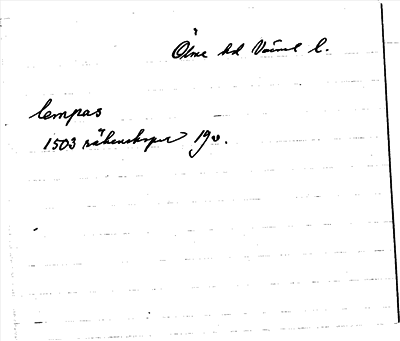 Ölme hd Värml l.
lempas
1503 räkenskaper 19v.